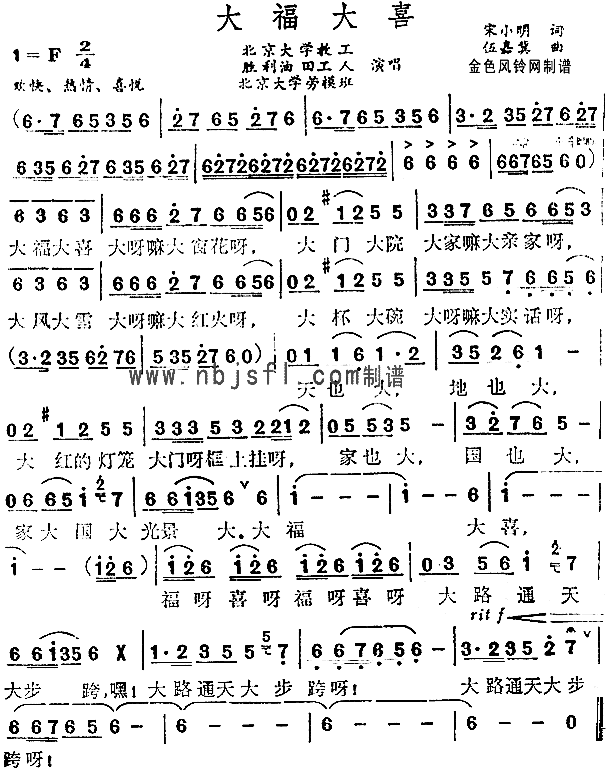 大福大喜
1=F 2/4
北京大学教工
胜利油田工人 演唱
北京大学劳模班
宋小明 词
伍嘉冀 曲
金色风铃网制谱
欢快、热情、喜悦
(6·7 65356 | 2765 276 | 6·765356 | 3·2 35276
635627635627 | 6272627262726272 | 6 6 6 6 | 66765 60)
6 3 6 3 | 666 27 6656 | 02 #1255 | 337 65 6653
大福大喜 大呀嘛大窗花呀, 大门大院 大家嘛大亲家呀,
6 3 6 3 | 666 27 6656 | 02 #1255 | 335 57 6656
大风大雷 大呀嘛大红火呀, 大杯大碗 大呀嘛大实话呀,
(3·235 6276 | 535276 0) | 01 16 | 1·2 | 35 26 | 1 -
www.nbjsfl.com制谱
天也大, 地也大,
02 #1255 | 3335 32212 | 05 535 | 3 27 | 6 -
大红的灯笼 大门呀框上挂呀, 家也大, 国也大,
06 651 27 | 661356 6 | 1 - | 1 - - 6 | 1 - -
家大国大光景 大·大福 大喜,
1 - - (126) | 126 126 | 126 126 | 03 561 27
福呀喜呀福呀喜呀 大路通天
rit f
661356 X | 1·2355 57 | 667656 - | 3·235 27
大步 跨,嘿!大路通天大步 跨呀! 大路通天大步
66765 | 6 - | 6 - | 6 - | 6 - | 6 0
跨呀!